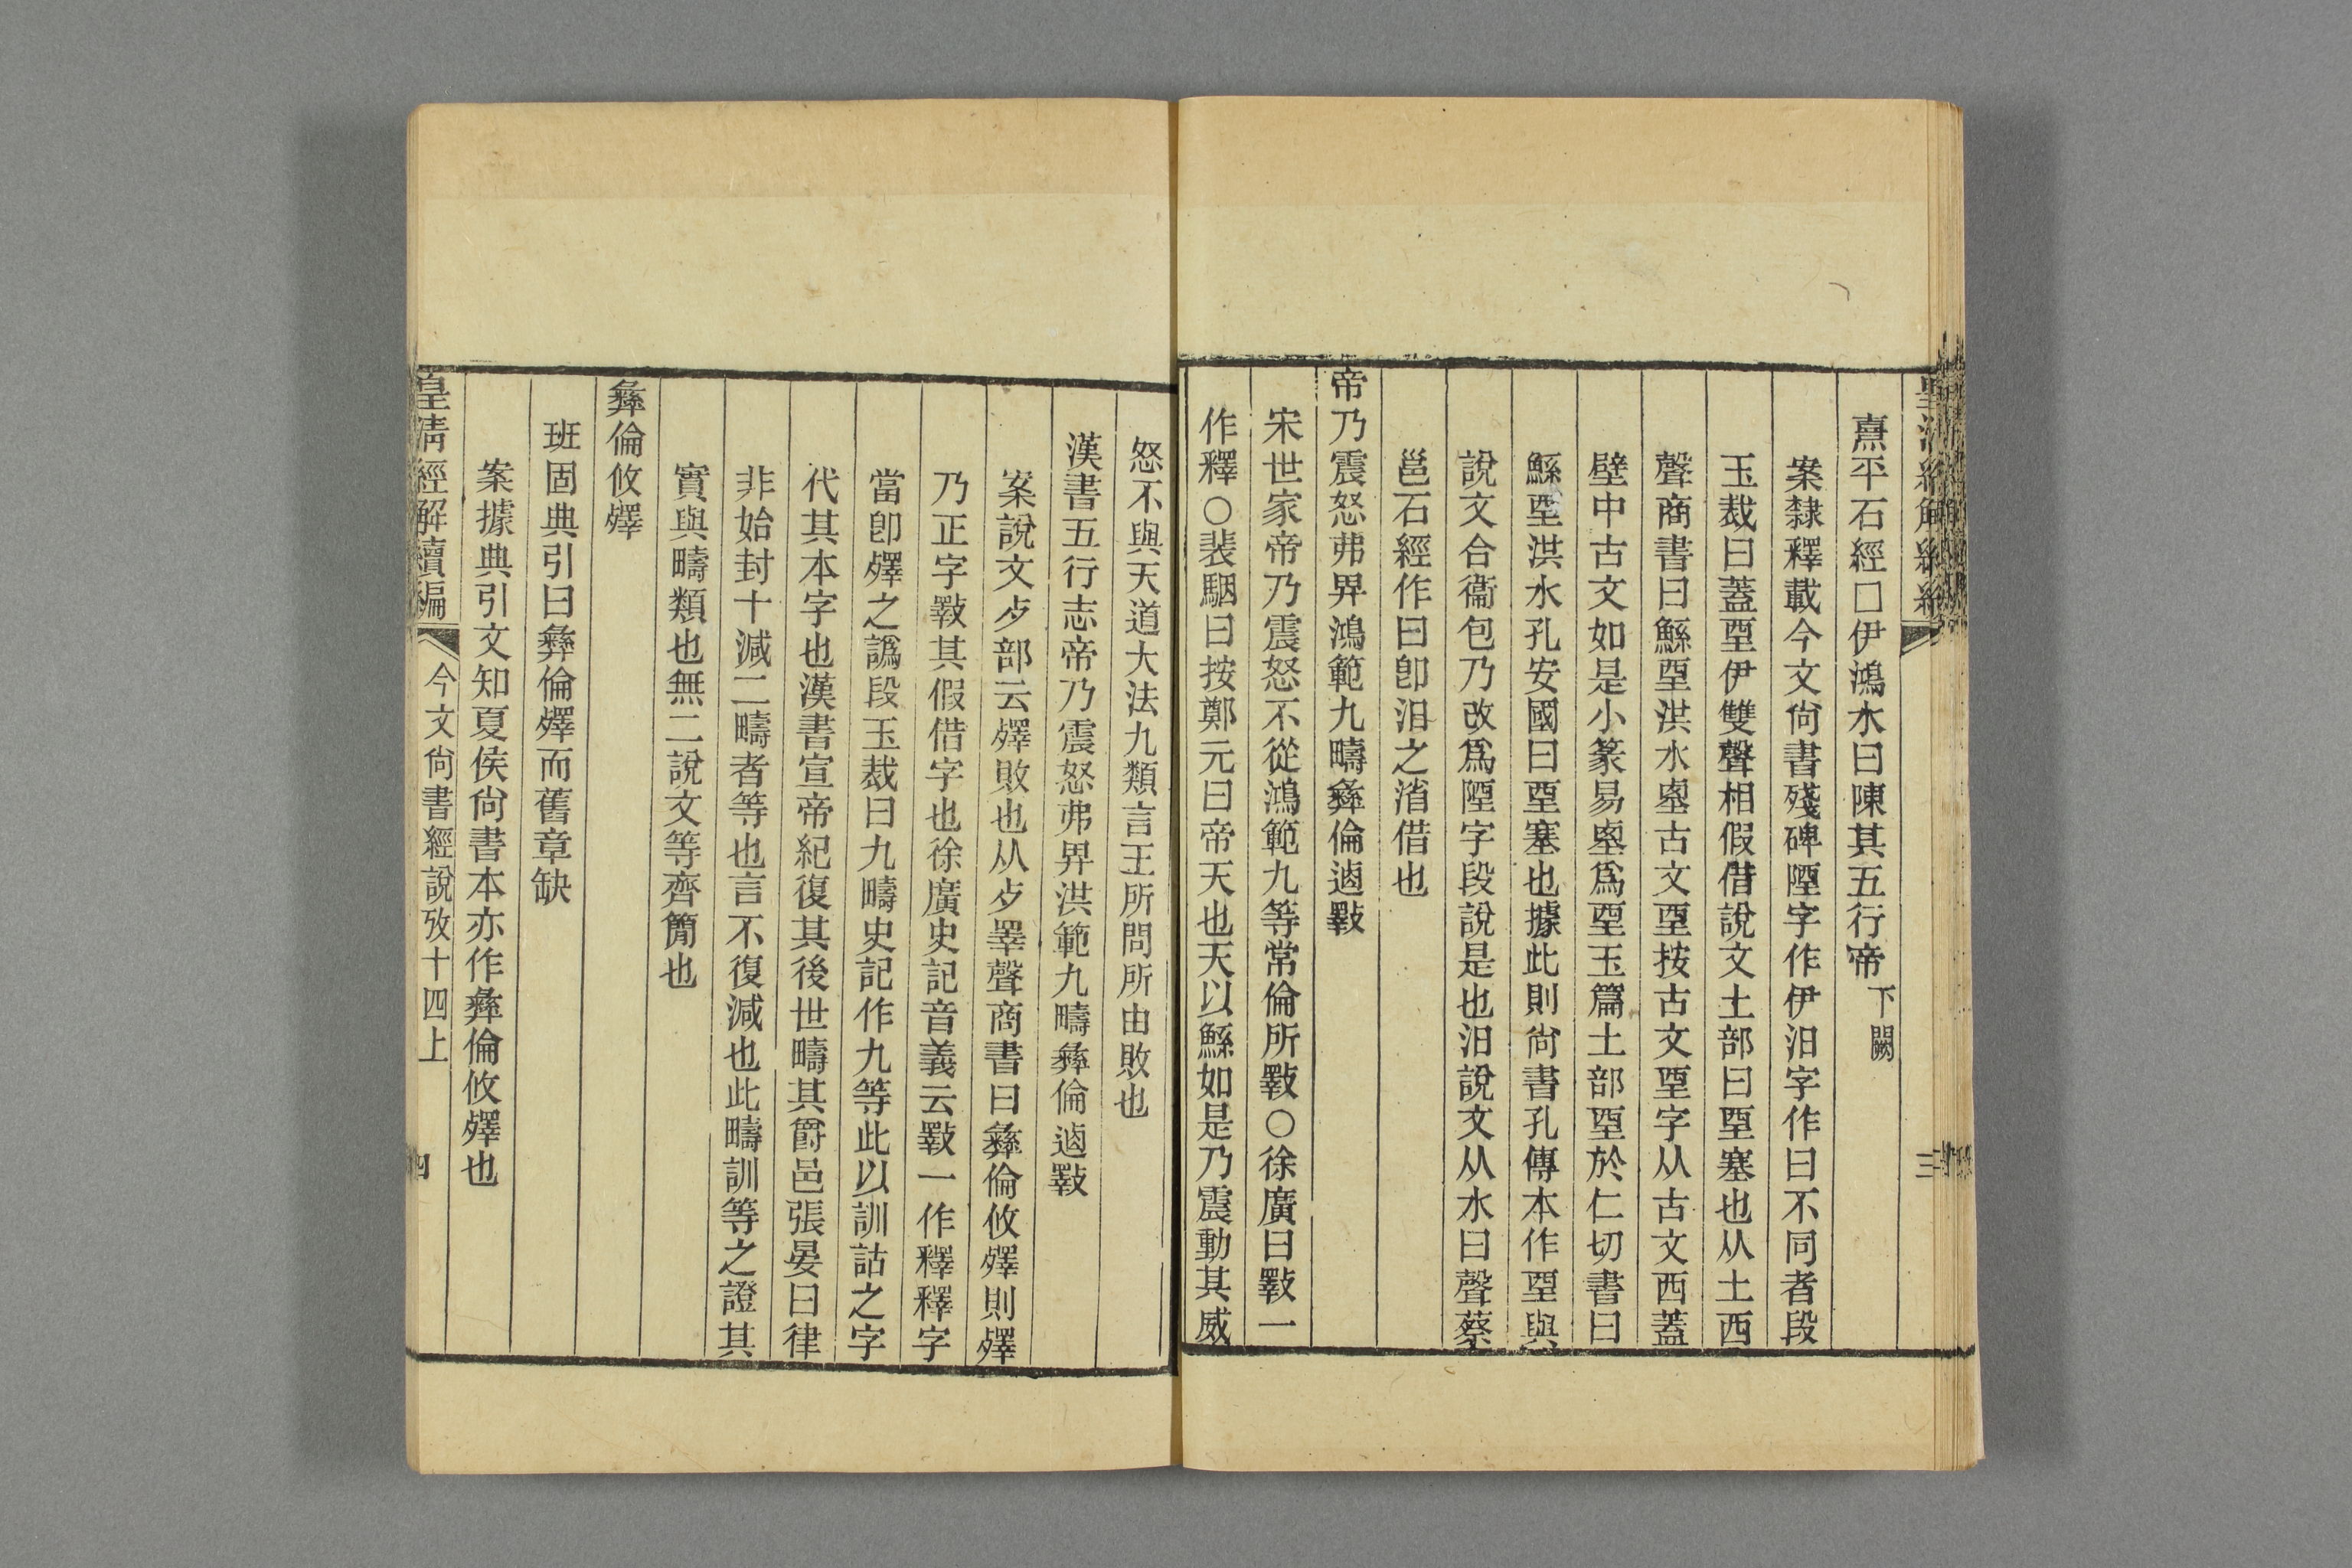 熹平石經□伊鴻水曰陳其五行帝下闕
案隸釋載今文尙書殘碑陻字作伊汩字作曰不同者段
玉裁曰蓋垔伊雙聲相假借說文土部曰垔塞也从土西
聲商書曰鯀垔洪水𡎳古文垔按古文垔字从古文西蓋
壁中古文如是小篆易𡎳爲垔玉篇土部垔於仁切書曰
鯀垔洪水孔安國曰垔塞也據此則尙書孔傳本作垔與
說文合衞包乃改爲陻字段說是也汩說文从水曰聲蔡
邕石經作曰卽汩之消借也
帝乃震怒弗畀鴻範九疇彝倫逌斁
宋世家帝乃震怒不從鴻範九等常倫所斁○徐廣曰斁一
作釋○裴駰曰按鄭元曰帝天也天以鯀如是乃震動其威
怒不與天道大法九類言王所問所由敗也
漢書五行志帝乃震怒弗畀洪範九疇彝倫逌斁
案說文歺部云殬敗也从歺睪聲商書曰彝倫攸殬則殬
乃正字斁其假借字也徐廣史記音義云斁一作釋釋字
當卽殬之譌段玉裁曰九疇史記作九等此以訓詁之字
代其本字也漢書宣帝紀復其後世疇其爵邑張晏曰律
非始封十減二疇者等也言不復減也此疇訓等之證其
實與疇類也無二說文等齊簡也
彝倫攸殬
班固典引曰彝倫殬而舊章缺
案據典引文知夏侯尙書本亦作彝倫攸殬也
皇清經解續編 今文尙書經說攷十四上 四